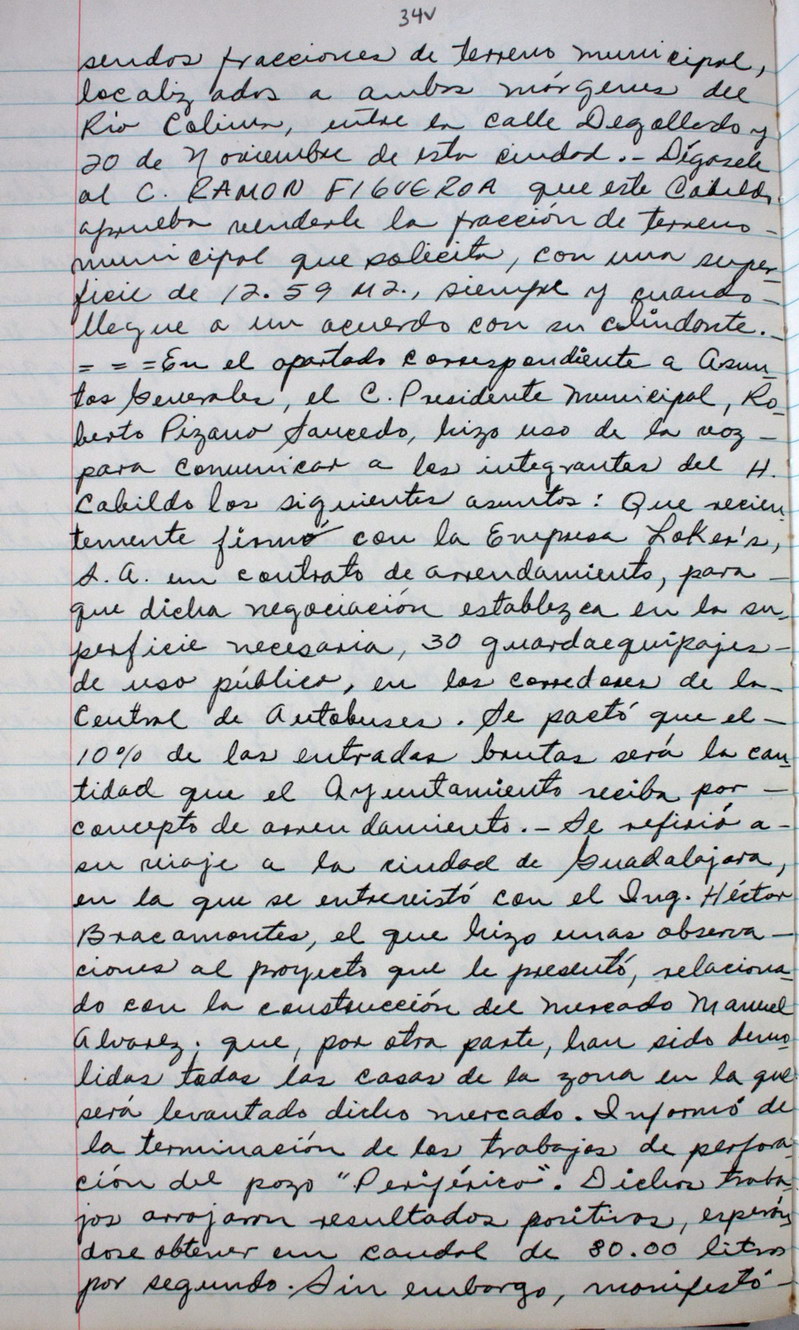 34v
sendos fracciones de terreno municipal,
localizados a ambos márgenes del
Río Colima, entre la calle Degollado y
20 de Noviembre de esta ciudad.- Dígasele
al C. RAMON FIGUEROA que este Cabildo
aprueba venderle la fracción de terreno-
municipal que solicita, con una super-
ficie de 12.59 M2., siempre y cuando-
llegue a un acuerdo con su colindante.-
= = =En el apartado correspondiente a Asun-
tos Generales, el C. Presidente Municipal, Ro-
berto Pizano Saucedo, hizo uso de la voz-
para comunicar a los integrantes del H.
Cabildo los siguientes asuntos: Que recien-
temente firmó con la Empresa Loker's,
S. A. un contrato de arrendamiento, para-
que dicha negociación establezca en la su-
perficie necesaria, 30 guardaequipajes-
de uso público, en los corredores de la-
Central de Autobuses. Se pactó que el-
10% de las entradas brutas será la can-
tidad que el Ayuntamiento reciba por-
concepto de arrendamiento.- Se refirió a-
su viaje a la ciudad de Guadalajara,
en la que se entrevistó con el Ing. Héctor
Bracamontes, el que hizo unas observa-
ciones al proyecto que le presentó, relaciona-
do con la construcción del mercado Manuel
Alvarez. que, por otra parte, han sido demo-
lidas todas las casas de la zona en la que
será levantado dicho mercado. Informó de
la terminación de los trabajos de perfora-
ción del pozo "Periférico". Dichos traba-
jos arrojaron resultados positivos, esperán-
dose obtener un caudal de 80.00 litros
por segundo. Sin embargo, manifestó-